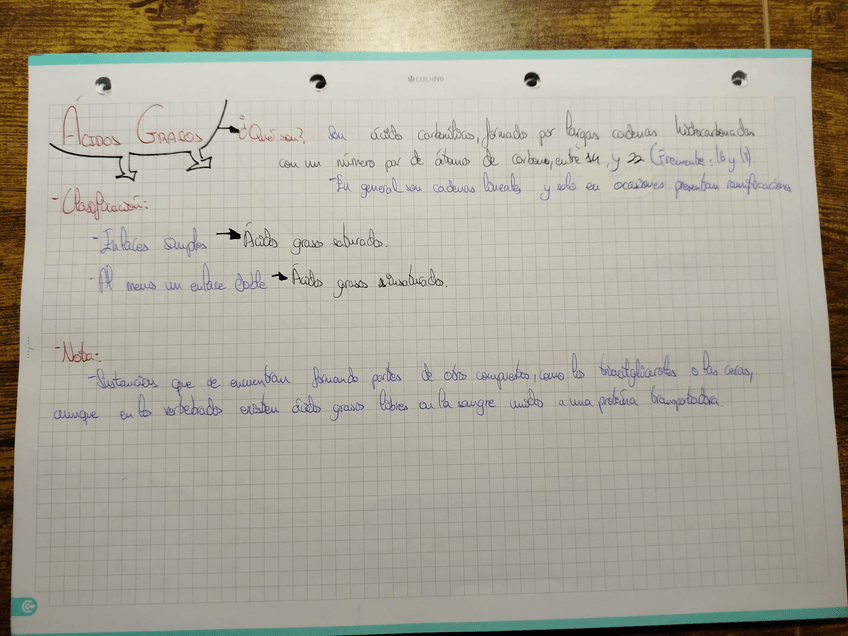 CARCHIVO
ÁCIDOS GRASOS
¿Qué son? Son ácido carboxílicos, formado por largas cadenas hidrocarbonadas
con un número par de átomos de carbono, entre 14 y 22 (Frecuente: 16 y 18)
- En general son cadenas lineales y solo en ocasiones presentan ramificaciones
- Clasificación:
- Enlaces simples → Ácido graso saturado.
- Al menos un enlace doble → Ácido grasos insaturado.
- Nota:
- Sustancias que de encuentran formando partes de otro compuestos, como los triacilgliceroles o las ceras,
aunque en los vertebrados existen ácido grasos libres en la sangre unido a una proteína transportadora.